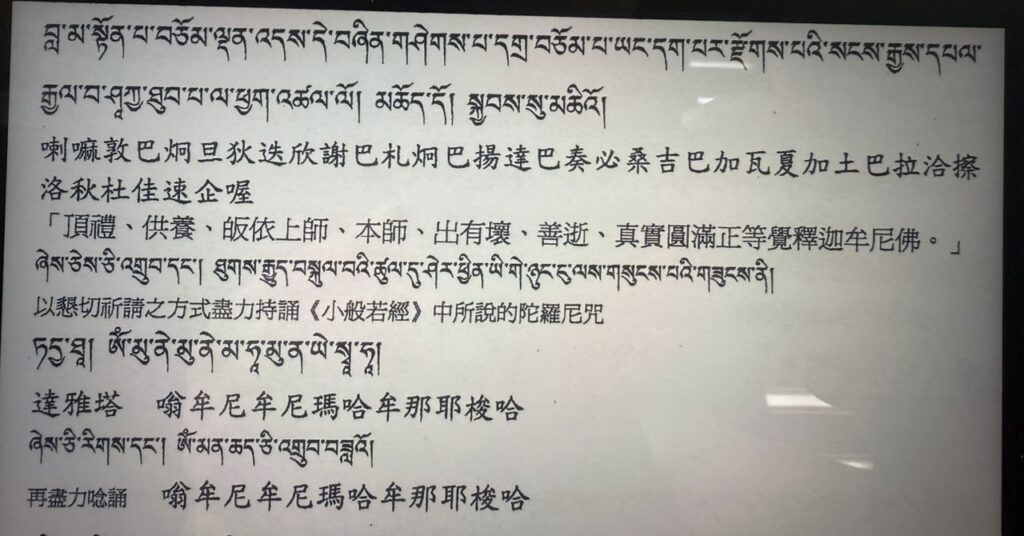 བླ་མ་སྟོན་པ་བཅོམ་ལྡན་འདས་དེ་བཞིན་གཤེགས་པ་དགྲ་བཅོམ་པ་ཡང་དག་པར་རྫོགས་པའི་སངས་རྒྱས་དཔལ་
རྒྱལ་བ་ཤཱཀྱ་ཐུབ་པ་ལ་ཕྱག་འཚལ་ལོ། མཆོད་དོ། སྐྱབས་སུ་མཆིའོ།
喇嘛敦巴炯旦狄迭欣謝巴札炯巴揚達巴奏必桑吉巴加瓦夏加土巴拉洽擦
洛秋杜佳速企喔
「頂禮、供養、皈依上師、本師、出有壞、善逝、真實圓滿正等覺釋迦牟尼佛。」
ཞེས་ཅེས་ཅི་འགྲུབ་དང་། ཐུགས་རྒྱུད་བསྐུལ་བའི་ཚུལ་དུ་ཤེར་ཕྱིན་ཡི་གེ་ཉུང་ངུ་ལས་གསུངས་པའི་གཟུངས་ནི།
以懇切祈請之方式盡力持誦《小般若經》中所說的陀羅尼咒
ཏདྱ་ཐཱ། ཨོཾ་མུ་ནེ་མུ་ནེ་མ་ཧཱ་མུ་ན་ཡེ་སྭཱ་ཧཱ།
達雅塔　嗡牟尼牟尼瑪哈牟那耶梭哈
ཞེས་ཅི་རིགས་དང་། ཨོཾ་མན་ཆད་ཅི་འགྲུབ་བཟླའོ།
再盡力唸誦　嗡牟尼牟尼瑪哈牟那耶梭哈